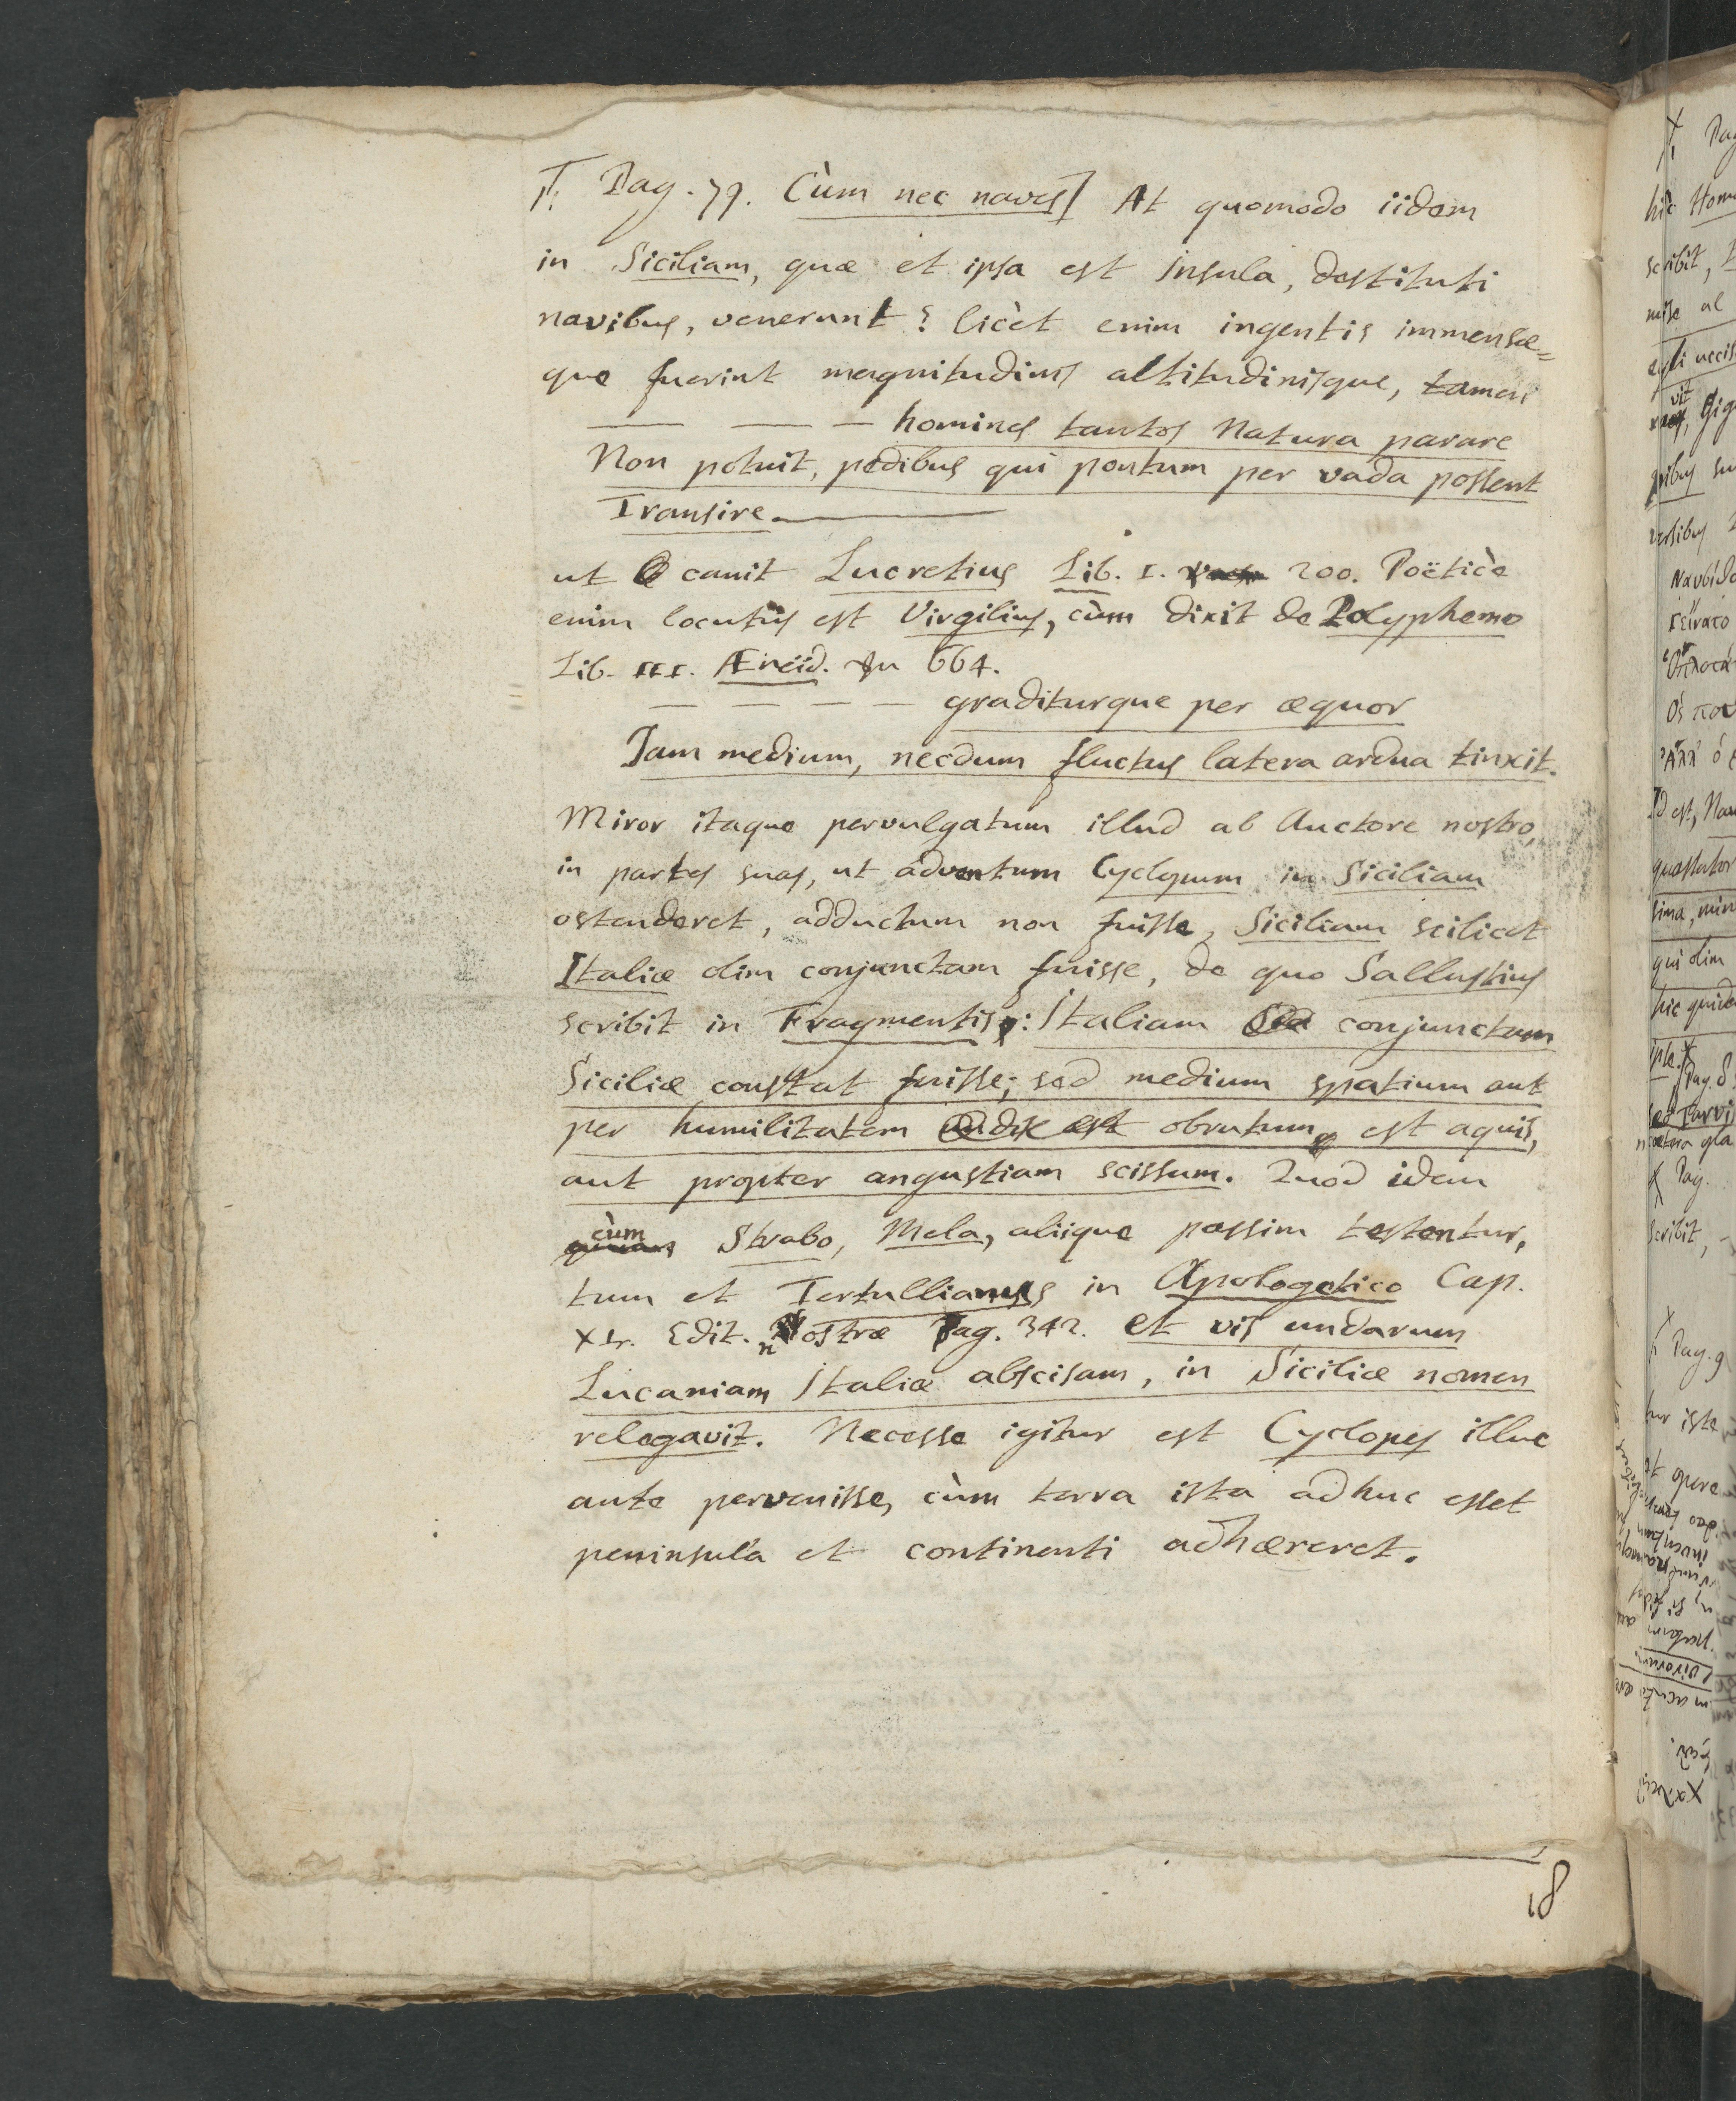 Pag. 79. Cùm nec naves] At quomodo iidem
in Siciliam, quæ et ipsa est insula, destituti
navibus, venerunt? licèt enim ingentis immensæ=
que fuerint magnitudinis altitudinisque, tamen
— — — homines tantos Natura parare
Non potuit, pedibus qui pontum per vada possent
Transire. —
ut canit Lucretius Lib. I. 200. Poëticè
enim locutus est Virgilius, cùm dixit de Polyphemo
Lib. III. Æneid. 664.
— — — — graditurque per æquor
Jam medium, necdum fluctus latera ardua tinxit.
Miror itaque pervulgatum illud ab Auctore nostro,
in partes suas, ut adventum Cyclopum in Siciliam
ostenderet, adductum non fuisse, Siciliam scilicet
Italiæ olim conjunctam fuisse, de quo Sallustius
scribit in Fragmentis: Italiam conjunctam
Siciliæ constat fuisse; sed medium spatium aut
per humilitatem obrutum est aquis,
aut propter angustiam scissum. Quod idem
cùm Strabo, Mela, aliique passim testentur,
tum et Tertullianus in Apologetico Cap.
XL. Edit. nostræ Pag. 342. et vis undarum
Lucaniam Italiæ abscisam, in Siciliæ nomen
relegavit. Necesse igitur est Cyclopes illuc
ante pervenisse, cùm terra ista adhuc esset
peninsula et continenti adhæreret.
18